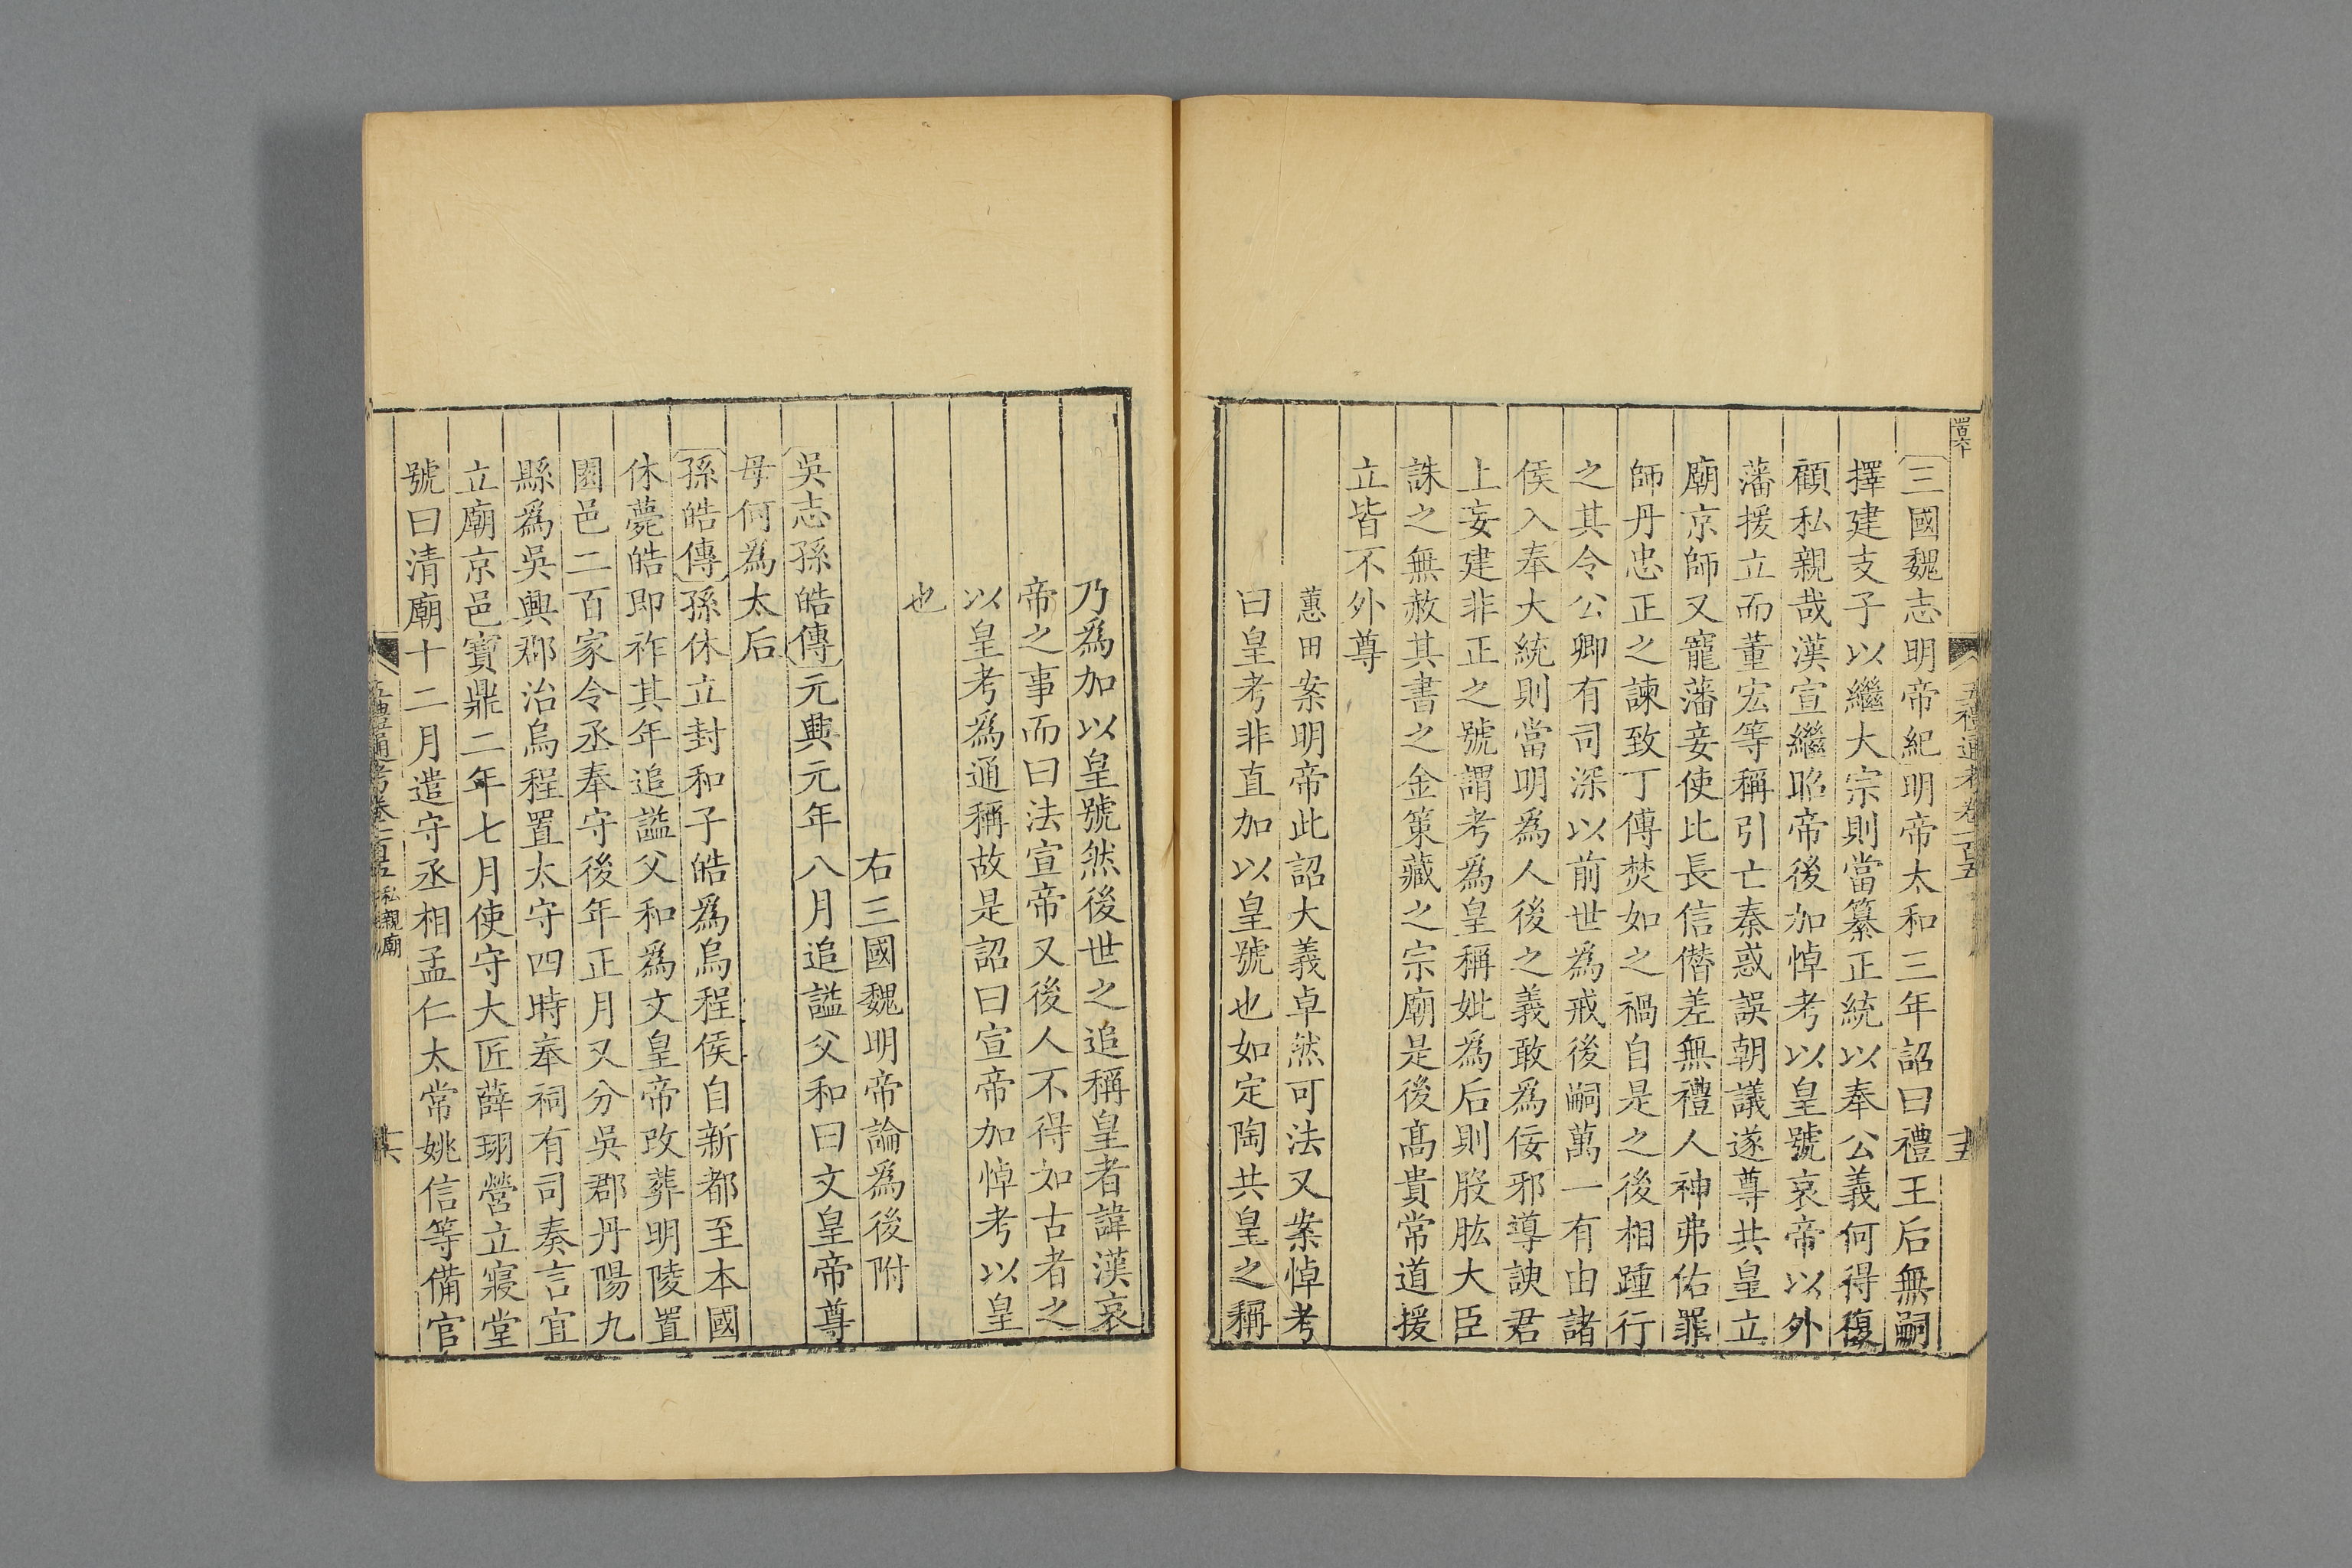 三國魏志明帝紀明帝太和三年詔曰禮王后無嗣
擇建支子以繼大宗則當纂正統以奉公義何得復
顧私親哉漢宣繼昭帝後加悼考以皇號哀帝以外
藩援立而董宏等稱引亡秦惑誤朝議遂尊共皇立
廟京師又寵藩妾使比長信僭差無禮人神弗佑罪
師丹忠正之諫致丁傅焚如之禍自是之後相踵行
之其令公卿有司深以前世爲戒後嗣萬一有由諸
侯入奉大統則當明爲人後之義敢爲佞邪導諛君
上妄建非正之號謂考爲皇稱妣爲后則股肱大臣
誅之無赦其書之金策藏之宗廟是後高貴常道援
立皆不外尊
蕙田案明帝此詔大義卓然可法又案悼考
曰皇考非直加以皇號也如定陶共皇之稱
乃爲加以皇號然後世之追稱皇者諱漢哀
帝之事而曰法宣帝又後人不得如古者之
以皇考爲通稱故是詔曰宣帝加悼考以皇
也
右三國魏明帝論爲後附
吳志孫皓傳元興元年八月追謚父和曰文皇帝尊
母何爲太后
孫皓傳孫休立封和子皓爲烏程侯自新都至本國
休薨皓即祚其年追謚父和爲文皇帝改葬明陵置
園邑二百家令丞奉守後年正月又分吳郡丹陽九
縣爲吳興郡治烏程置太守四時奉祠有司奏言宜
立廟京邑寶鼎二年七月使守大匠薛珝營立寢堂
號曰清廟十二月遣守丞相孟仁太常姚信等備官
私親廟